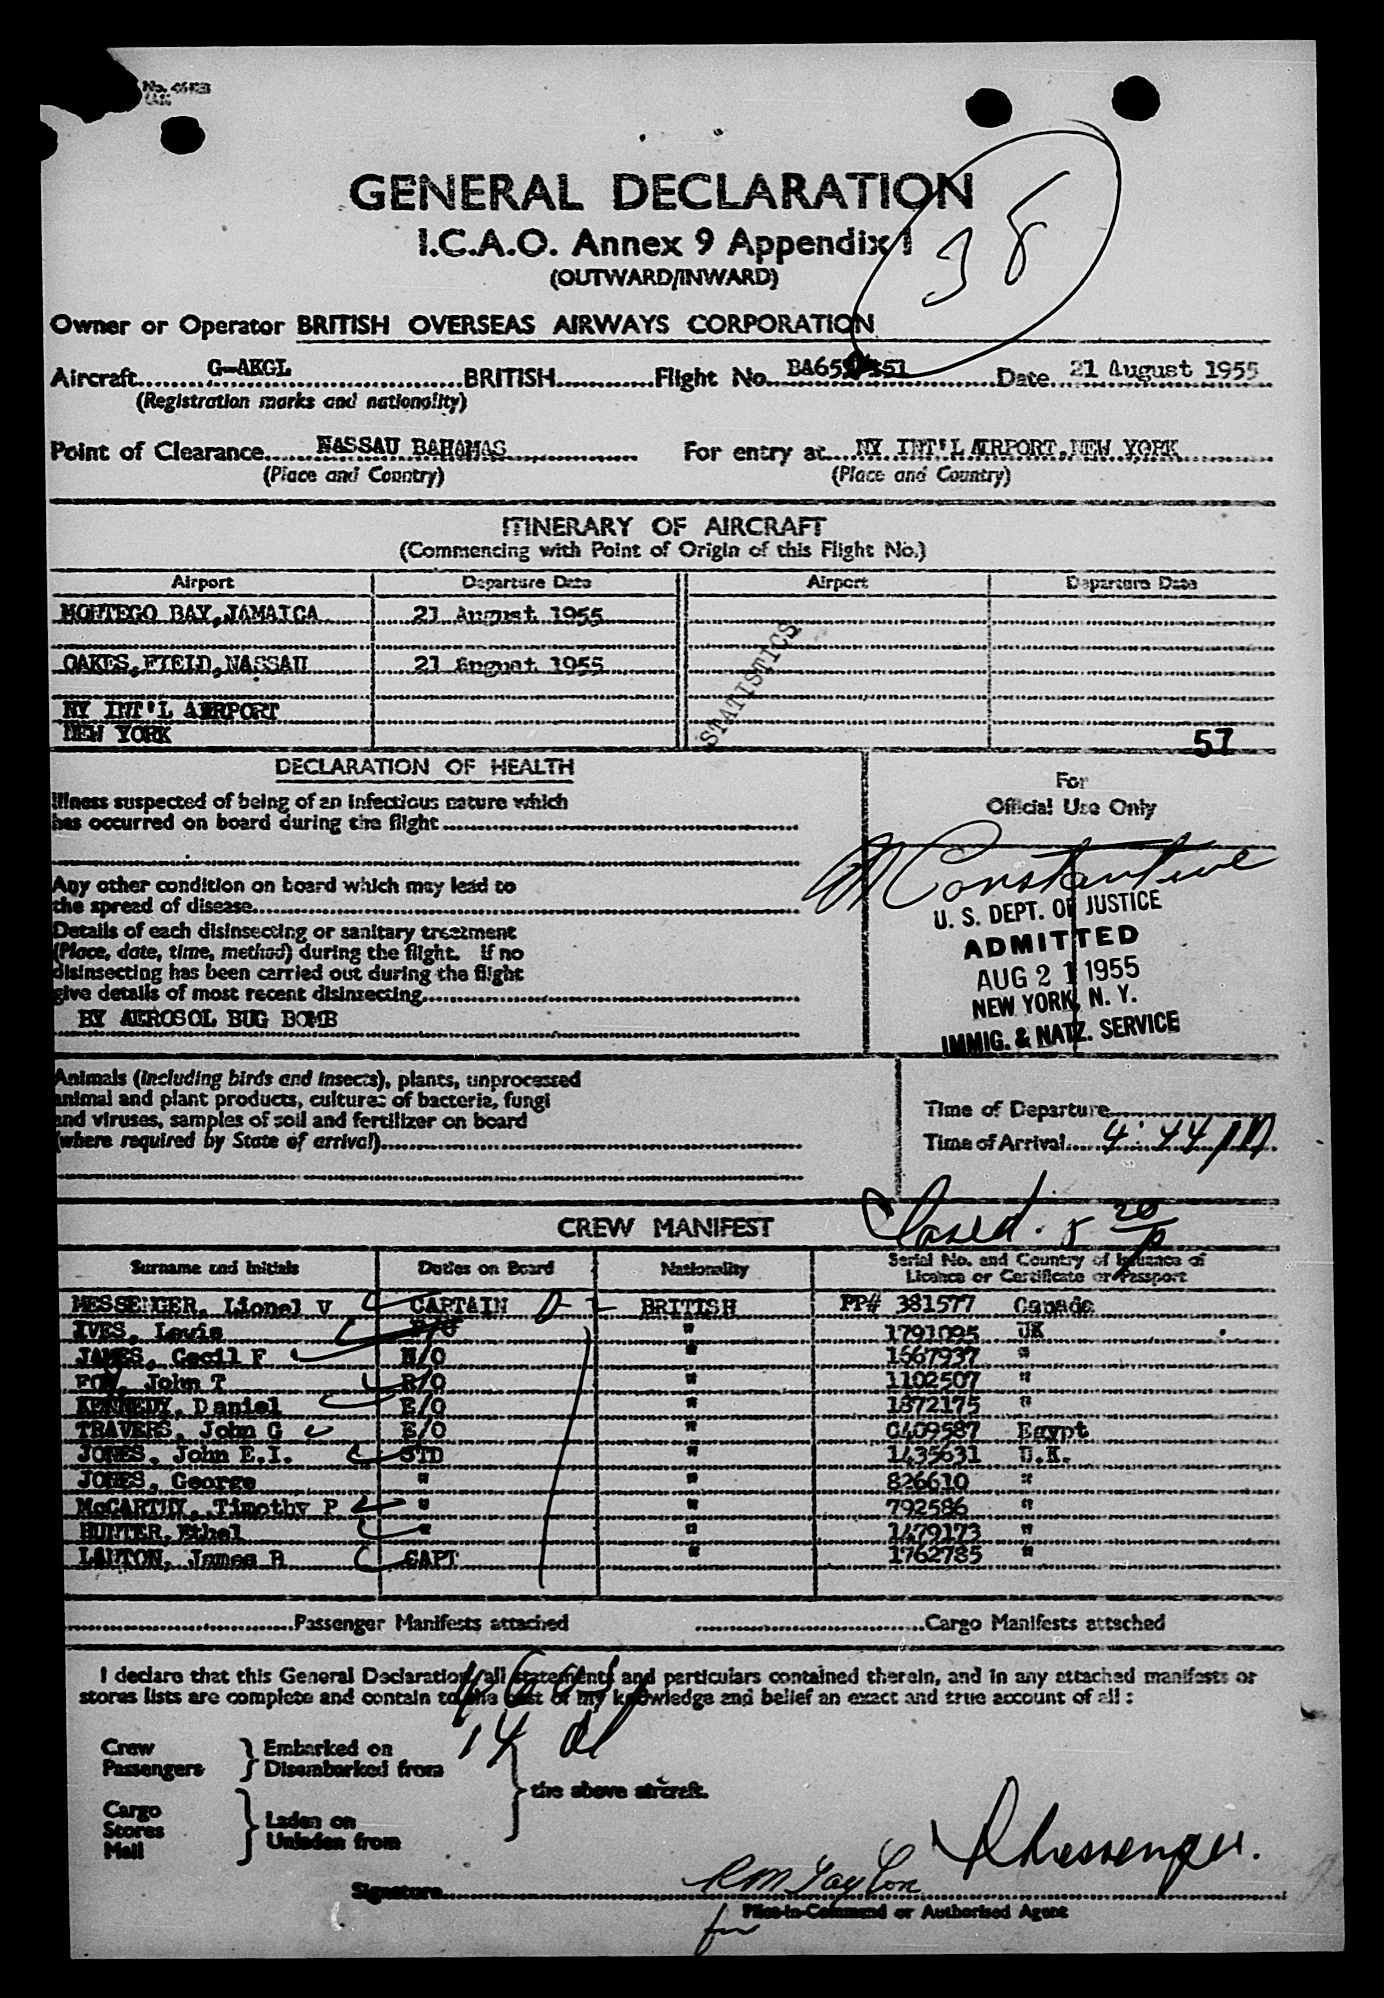 GENERAL DECLARATION
I.C.A.O. Annex 9 Appendix 1
(OUTWARD/INWARD)
38
Owner or Operator BRITISH OVERSEAS AIRWAYS CORPORATION
Aircraft G-AKGL BRITISH Flight No. Date 21 August 1955
(Registration marks and nationality)
Point of Clearance NASSAU BAHAMAS For entry at NY INT'L AIRPORT, NEW YORK
(Place and Country) (Place and Country)
ITINERARY OF AIRCRAFT
(Commencing with Point of Origin of this Flight No.)
Airport Departure Date Airport Departure Date
MONTEGO BAY, JAMAICA 21 August 1955
OAKES, FIELD, NASSAU 21 August 1955
STATISTICS
NY INT'L AIRPORT
NEW YORK
57
DECLARATION OF HEALTH
Illness suspected of being of an infectious nature which
has occurred on board during the flight
Any other condition on board which may lead to
the spread of disease
Details of each disinsecting or sanitary treatment
(Place, date, time, method) during the flight. If no
disinsecting has been carried out during the flight
give details of most recent disinsecting
BY AEROSOL BUG BOMB
For
Official Use Only
M Constantine
U. S. DEPT. OF JUSTICE
ADMITTED
AUG 21 1955
NEW YORK, N. Y.
IMMIG. & NATZ. SERVICE
Animals (including birds and insects), plants, unprocessed
animal and plant products, cultures of bacteria, fungi
and viruses, samples of soil and fertilizer on board
(where required by State of arrival)
Time of Departure
Time of Arrival 4:44 PM
Closed. 5 20 P
CREW MANIFEST
Surname and Initials Duties on Board Nationality Serial No. and Country of Issuance of
Licence or Certificate or Passport
MESSENGER, Lionel V CAPTAIN BRITISH PP# 381577 Canada
IVES, Lewis F/O " 1791095 UK
JAMES, Cecil F N/O " 1667937 "
FOY, John T R/O " 1102507 "
KENNEDY, Daniel E/O " 1872175 "
TRAVERS, John G E/O " 0409587 Egypt
JONES, John E.I. STD " 1435631 U.K.
JONES, George " " 826610 "
McCARTHY, Timothy P " " 792586 "
HUNTER, Ethel " " 1479173 "
LAUTON, James R CAPT " 1762785 "
Passenger Manifests attached Cargo Manifests attached
I declare that this General Declaration, all statements and particulars contained therein, and in any attached manifests or
stores lists are complete and contain to the best of my knowledge and belief an exact and true account of all :
14
Crew Embarked on
Passengers Disembarked from
the above aircraft.
Cargo Laden on
Stores Unladen from
Mail
Signature RM Taylor L Messenger.
for Pilot-in-Command or Authorised Agent